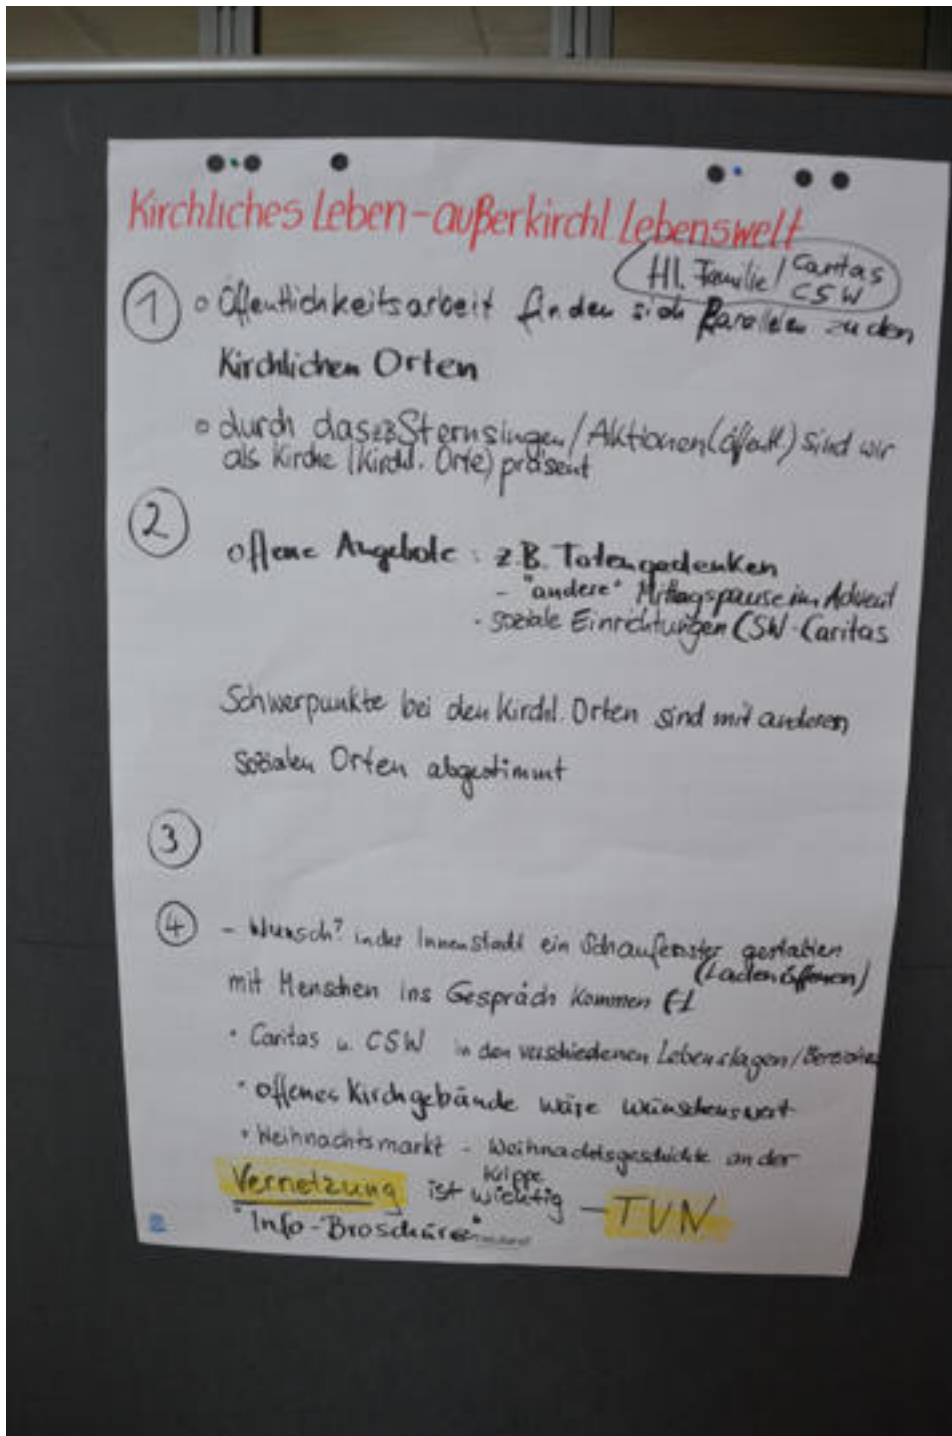 Kirchliches Leben - außerkirchl Lebenswelt
Hl. Familie / Caritas
CSW
① Öffentlichkeitsarbeit finden sich Parallelen zu den
Kirchlichen Orten
durch das zB Sternsingen / Aktionen (öffentl.) sind wir
als Kirche (Kirchl. Orte) präsent
②
offene Angebote : z.B. Totengedenken
- "andere" Mittagspause im Advent
- soziale Einrichtungen CSW - Caritas
Schwerpunkte bei den Kirchl. Orten sind mit anderen
sozialen Orten abgestimmt
③
④ - Wunsch? in der Innenstadt ein Schaufenster gestalten
(Laden öffnen)
mit Menschen ins Gespräch kommen
• Caritas u. CSW in den verschiedenen Lebenslagen / Bereichen
• offenes Kirchgebäude wäre wünschenswert
• Weihnachtsmarkt - Weihnachtsgeschichte an der
Krippe
Vernetzung ist wichtig - TVN
"Info-Broschüre"